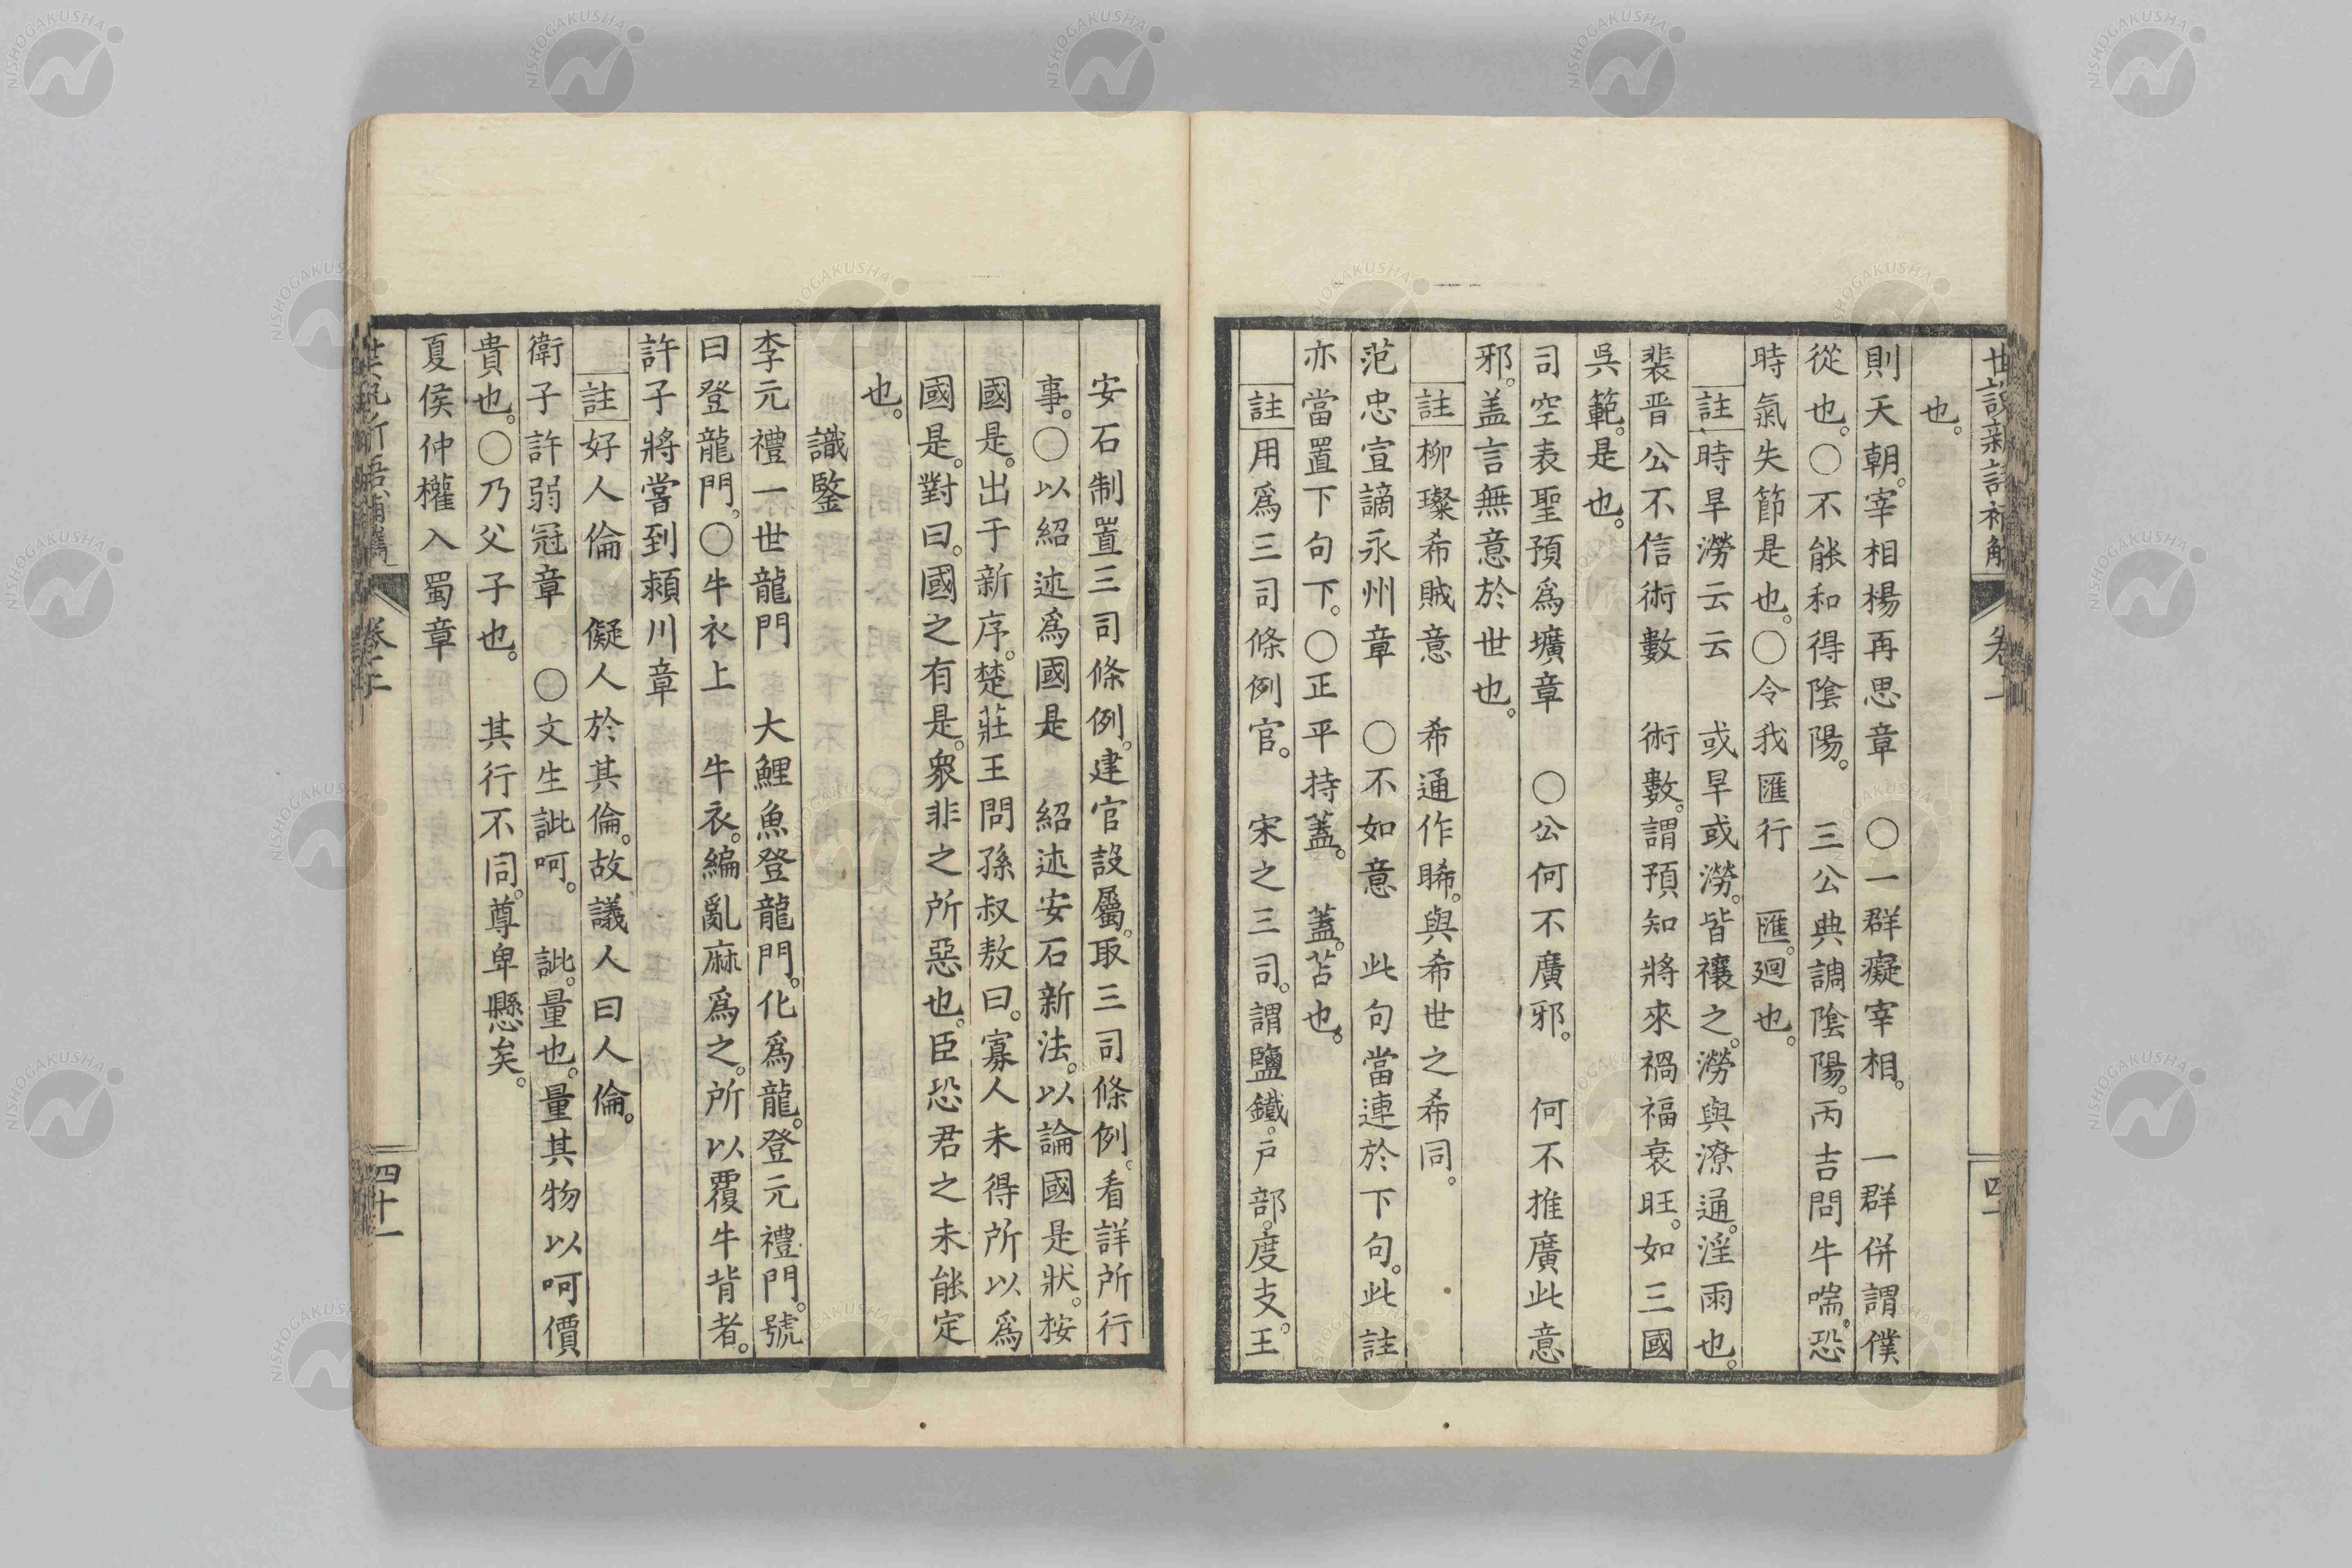 也。
則天朝。宰相楊再思章　〇一群癡宰相。　一群併謂僕
從也。〇不能和得陰陽。　三公典調陰陽。丙吉問牛喘。恐
時氣失節是也。〇令我匯行　匯。廻也。
註 時旱澇云云　或旱或澇。皆禳之。澇與潦通。淫雨也。
裴晋公不信術數　術數。謂預知將來禍福衰旺。如三國
吳範。是也。
司空表聖預爲壙章　〇公何不廣邪。　何不推廣此意
邪。盖言無意於世也。
註 柳璨希賊意　希通作睎。與希世之希同。
范忠宣謫永州章　〇不如意　此句當連於下句。此註
亦當置下句下。〇正平持蓋。　蓋。苫也。
註 用爲三司條例官。　宋之三司。謂鹽鐵。戸部。度支。王
安石制置三司條例。建官設屬。取三司條例。看詳所行
事。〇以紹述爲國是　紹述安石新法。以論國是狀。按
國是。出于新序。楚莊王問孫叔敖曰。寡人未得所以爲
國是。對曰。國之有是。衆非之所惡也。臣恐君之未能定
也。
識鑒
李元禮一世龍門　大鯉魚登龍門。化爲龍。登元禮門。號
曰登龍門。〇牛衣上　牛衣。編亂麻爲之。所以覆牛背者。
許子將嘗到潁川章
註 好人倫　儗人於其倫。故議人曰人倫。
衛子許弱冠章　〇文生訾呵。　訾。量也。量其物以呵價
貴也。〇乃父子也。　其行不同。尊卑懸矣。
夏侯仲權入蜀章
四十一